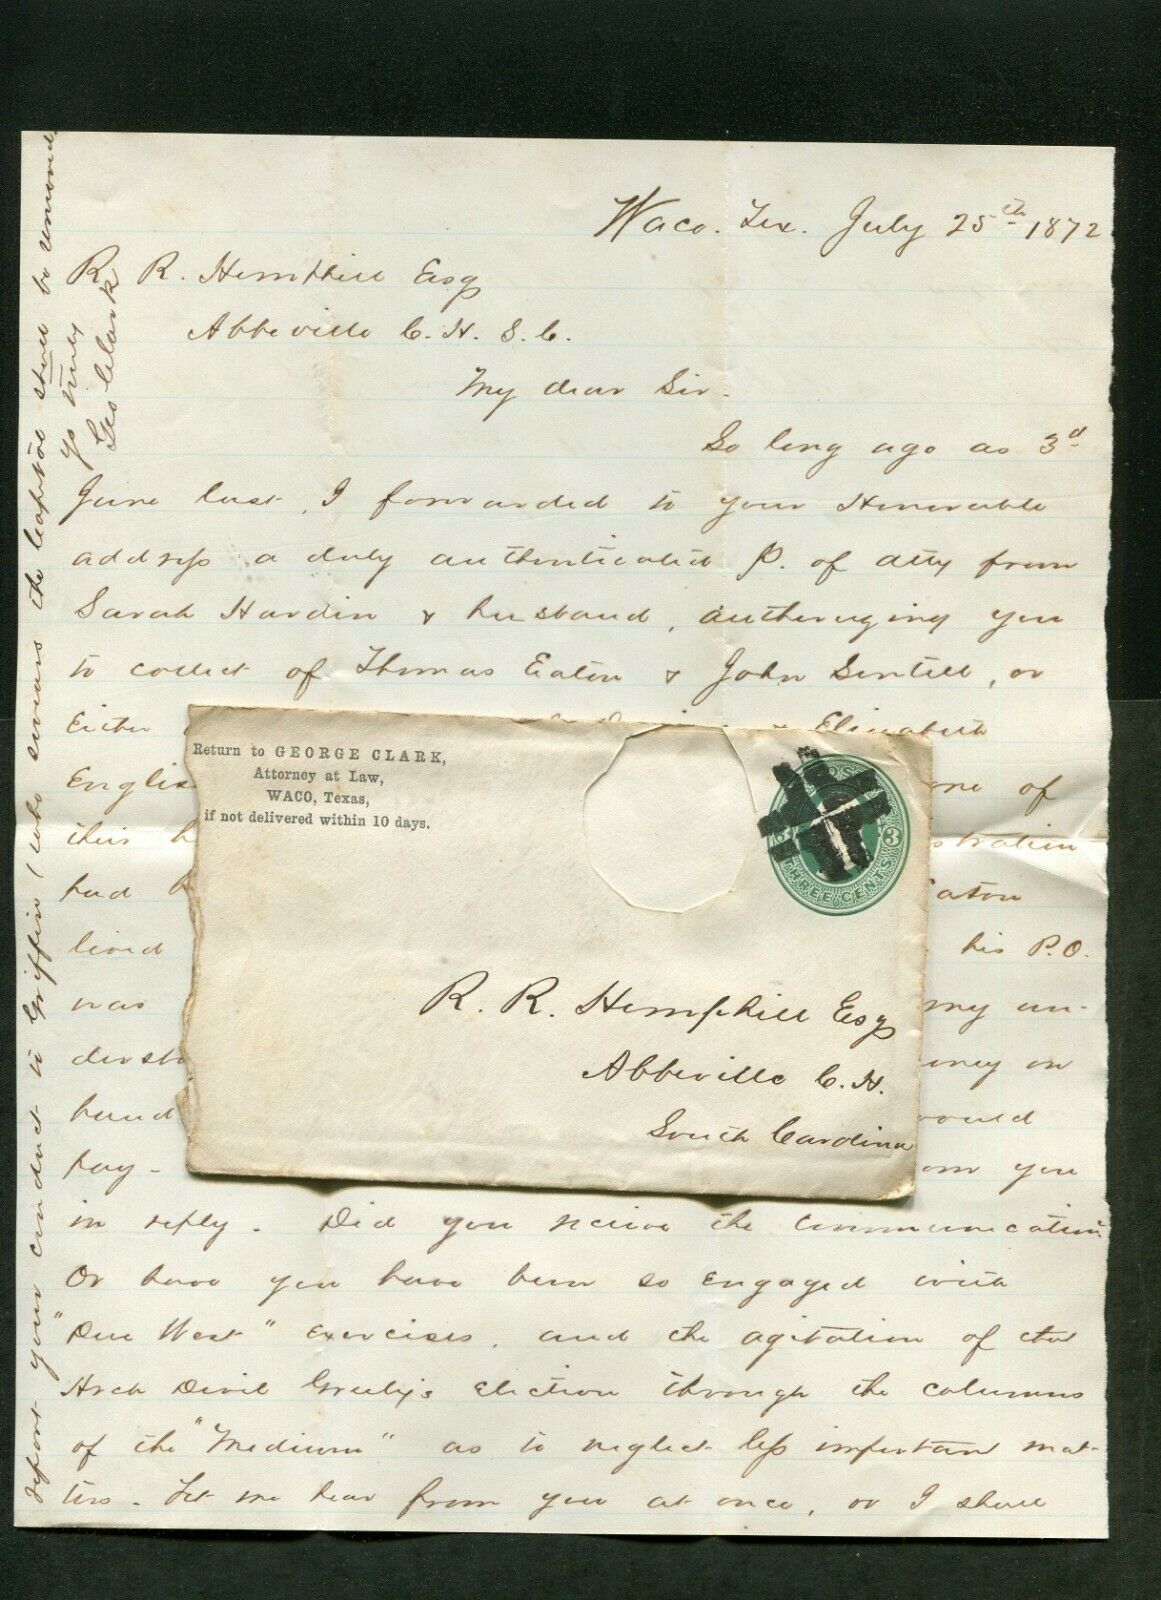 Waco. Tex. July 25th 1872
R. R. Hemphill Esq
Abbeville C. H. S. C.
My dear Sir.
So long ago as 3d
June last, I forwarded to your Honorable
address a duly authenticated P. of atty from
Sarah Hardin & husband, authorizing you
to collect of Thomas Eaton & John Sentell, or
Either & Elizabeth
one of
their
had Eaton
lived his P.O.
was my un-
on
hand would
pay - you
in reply - Did you receive the communication
Or have you have been so engaged with
"Due West" exercises, and the agitation of that
Arch Devil Greely's election through the columns
of the "Medium" as to neglect less important mat-
ters - Let me hear from you at once, or I shall
report your conduct to Griffin (who swears the capitol shall be removed)
yo truly
Geo Clark
Return to GEORGE CLARK,
Attorney at Law,
WACO, Texas,
if not delivered within 10 days.
THREE CENTS
3
R. R. Hemphill Esq
Abbeville C. H.
South Carolina